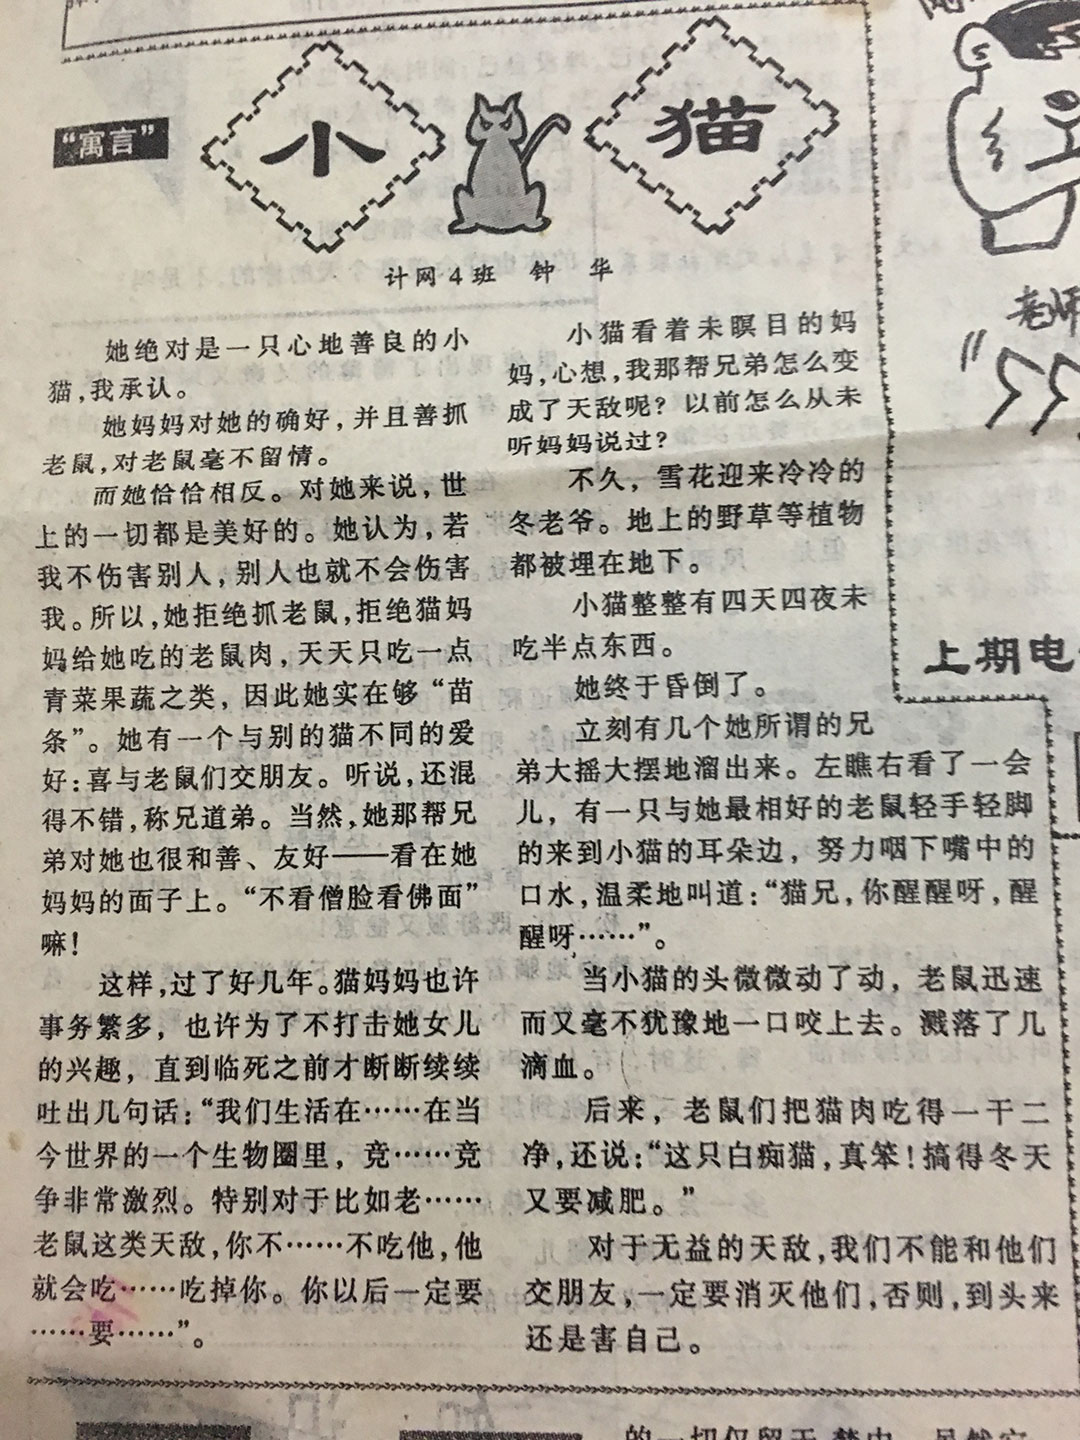 “寓言”
小猫
计网4班 钟 华
她绝对是一只心地善良的小
猫,我承认。
她妈妈对她的确好,并且善抓
老鼠,对老鼠毫不留情。
而她恰恰相反。对她来说,世
上的一切都是美好的。她认为,若
我不伤害别人,别人也就不会伤害
我。所以,她拒绝抓老鼠,拒绝猫妈
妈给她吃的老鼠肉,天天只吃一点
青菜果蔬之类,因此她实在够“苗
条”。她有一个与别的猫不同的爱
好:喜与老鼠们交朋友。听说,还混
得不错,称兄道弟。当然,她那帮兄
弟对她也很和善、友好——看在她
妈妈的面子上。“不看僧脸看佛面”
嘛!
这样,过了好几年。猫妈妈也许
事务繁多,也许为了不打击她女儿
的兴趣,直到临死之前才断断续续
吐出几句话:“我们生活在……在当
今世界的一个生物圈里,竞……竞
争非常激烈。特别对于比如老……
老鼠这类天敌,你不……不吃他,他
就会吃……吃掉你。你以后一定要
……要……”。
小猫看着未瞑目的妈
妈,心想,我那帮兄弟怎么变
成了天敌呢?以前怎么从未
听妈妈说过?
不久,雪花迎来冷冷的
冬老爷。地上的野草等植物
都被埋在地下。
小猫整整有四天四夜未
吃半点东西。
她终于昏倒了。
立刻有几个她所谓的兄
弟大摇大摆地溜出来。左瞧右看了一会
儿,有一只与她最相好的老鼠轻手轻脚
的来到小猫的耳朵边,努力咽下嘴中的
口水,温柔地叫道:“猫兄,你醒醒呀,醒
醒呀……”。
当小猫的头微微动了动,老鼠迅速
而又毫不犹豫地一口咬上去。溅落了几
滴血。
后来,老鼠们把猫肉吃得一干二
净,还说:“这只白痴猫,真笨!搞得冬天
又要减肥。”
对于无益的天敌,我们不能和他们
交朋友,一定要消灭他们,否则,到头来
还是害自己。
老师
上期电